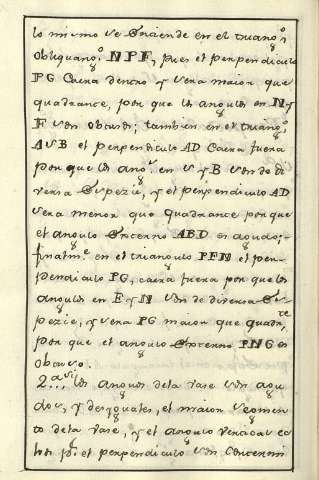 lo mismo se Entiende en el triang.º
obliquang.º NPF, pues el perpendiculo
PG Caera dentro y sera maior que
quadrante, por que ls angulos en N y
F son obtusos; tambien en el triang.º
ASB el perpendiculo AD Caera fuera
por que los ang.s en S y B son de di
versa Espezie, y el perpendiculo AD
sera menor que quadrante porque
et angulo Externo ABD es agudo;
finalm.e en el triangulo PFN el per-
pendiculo PG, caera fuera por que los
angulos en F y N son de diversa Es
pezie, y sera PG maior que quadr.te
por que et angulo Externo PNG es
obtuso.
los angulos dela vase son agu
dos, y desyguales, el maior segmen
to dela vase, y el angulo vertical
el perpendiculo son